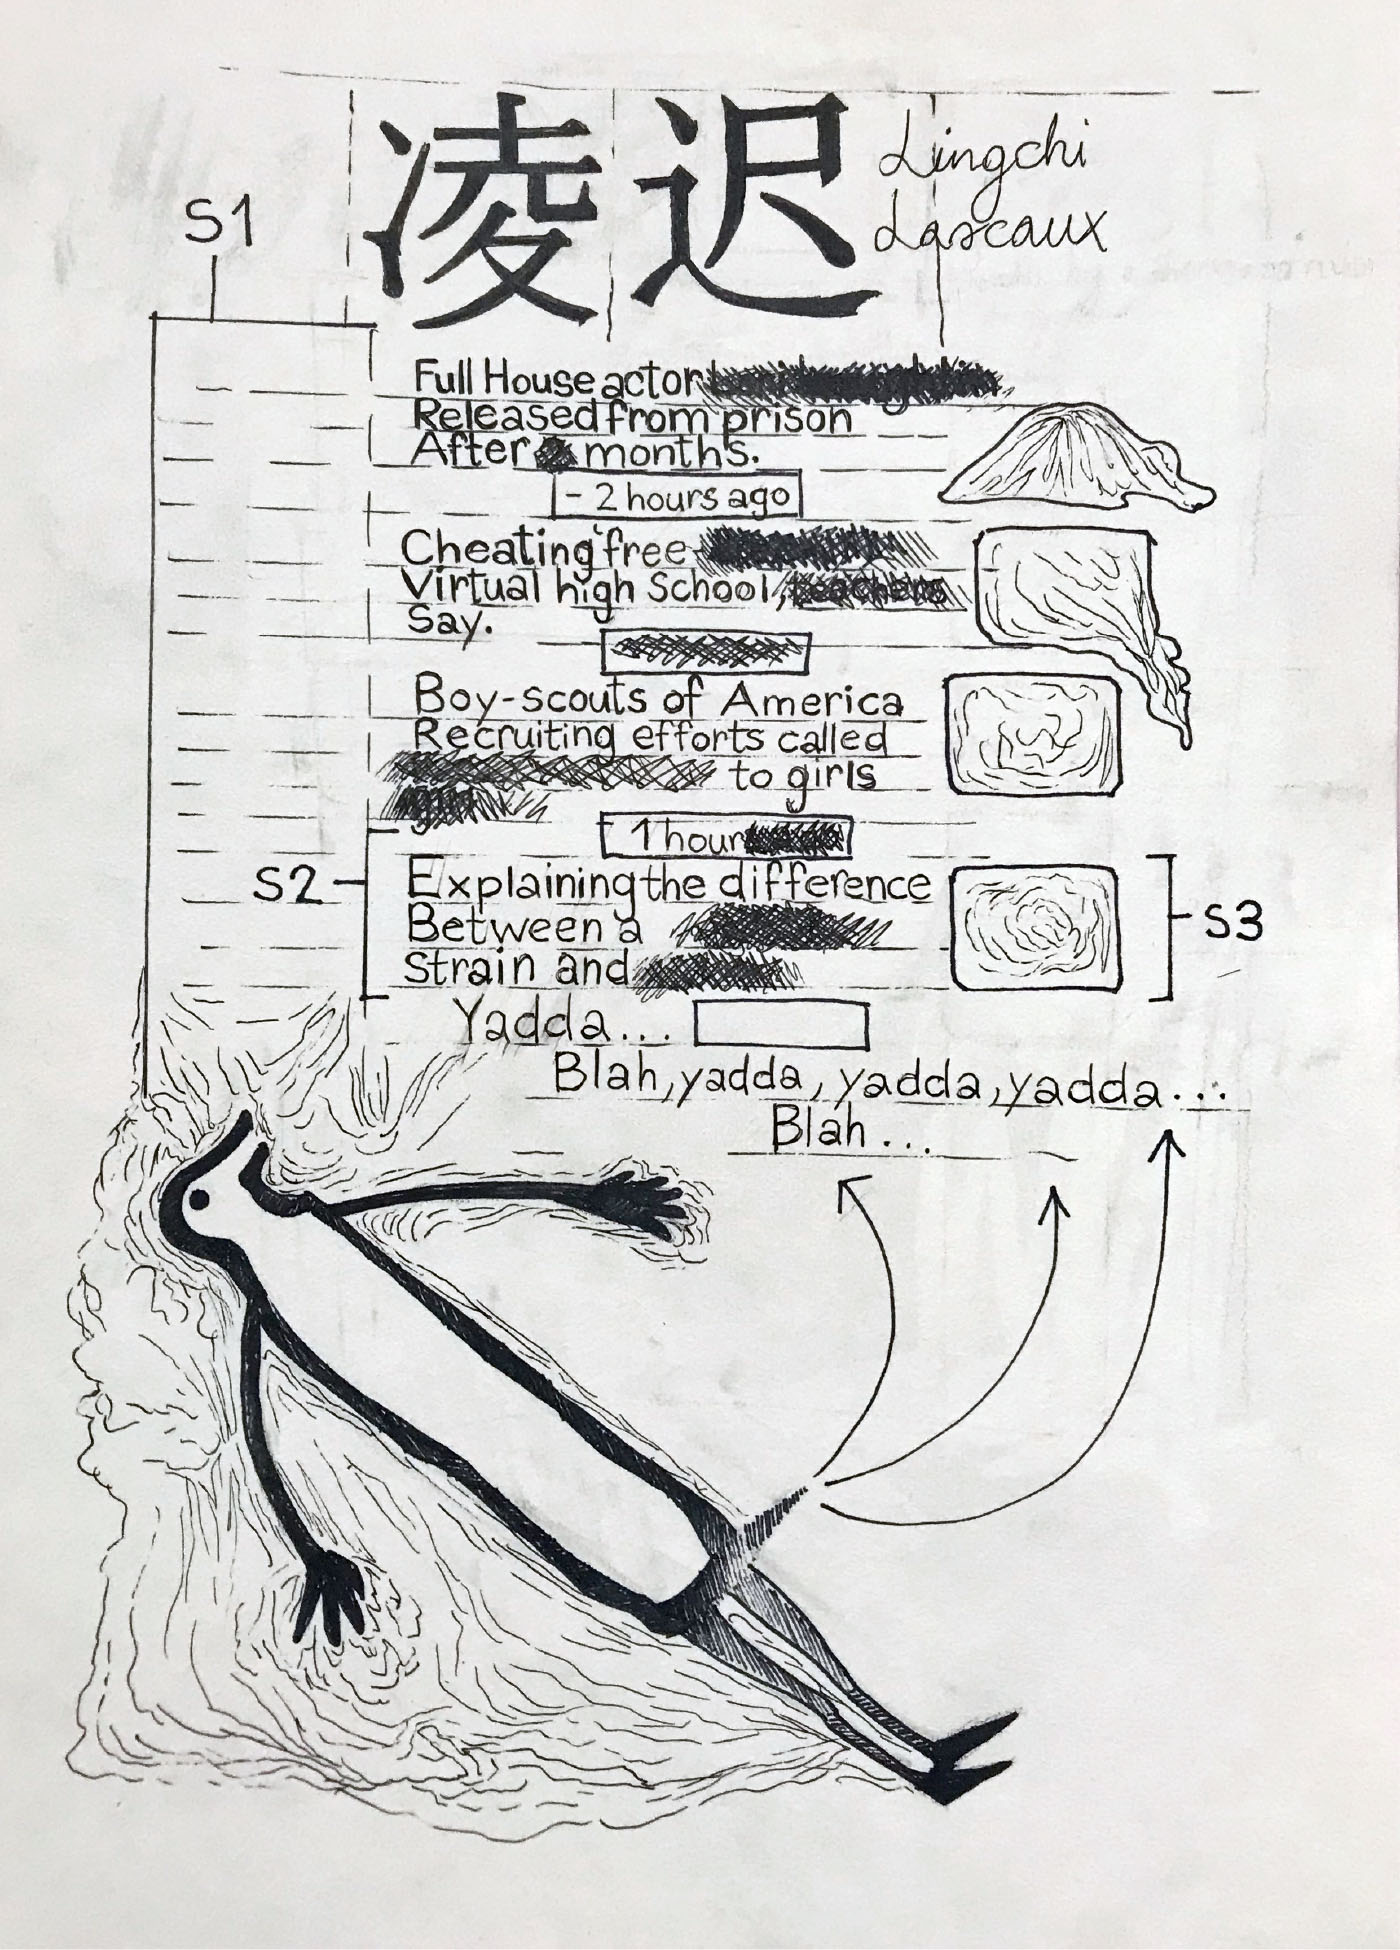 凌迟
Lingchi
Lascaux
S1
Full House actor
Released from prison
After months.
- 2 hours ago
Cheating free
Virtual high School, teachers
Say.
Boy-scouts of America
Recruiting efforts called
to girls
1 hour
S2
Explaining the difference
Between a
strain and
S3
Yadda...
Blah, yadda, yadda, yadda...
Blah...